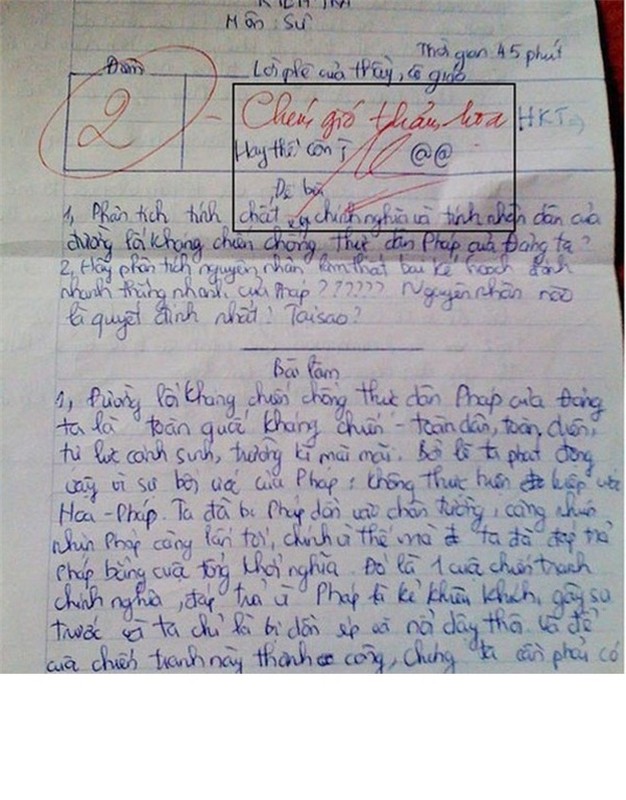 KIỂM TRA
Môn: Sử
Thời gian 45 phút
Điểm
Lời phê của thầy, cô giáo
2
- Chém gió thảm họa HKT
Hay thế còn gì @@
Đề bài
1, Phân tích tính chất chính nghĩa và tính nhân dân của
đường lối kháng chiến chống thực dân Pháp của Đảng ta?
2, Hãy phân tích nguyên nhân làm thất bại kế hoạch đánh
nhanh thắng nhanh của Pháp?????? Nguyên nhân nào
là quyết định nhất? Tại sao?
Bài làm
1, Đường lối kháng chiến chống thực dân Pháp của Đảng
ta là toàn quốc kháng chiến - toàn dân, toàn diện,
tự lực cánh sinh, trường kì mãi mãi. Bởi lẽ ta phát động
vậy vì sự bội ước của Pháp: không thực hiện hiệp ước
Hoa - Pháp. Ta đã bị Pháp dồn vào chân tường, càng nhún
nhịn Pháp càng lấn tới, chính vì thế mà ta đã đáp trả
Pháp bằng cuộc tổng khởi nghĩa. Đó là 1 cuộc chiến tranh
chính nghĩa, đáp trả vì Pháp là kẻ khiêu khích, gây sự
trước ta chỉ là bị dồn ép và nổi dậy thôi. Và để
cuộc chiến tranh này thành công, chúng ta cần phải có